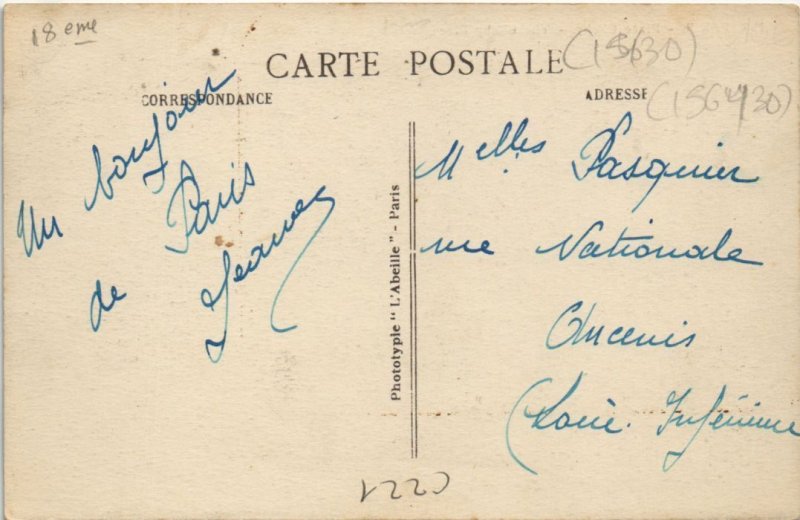 18 eme
CARTE POSTALE
(15630)
CORRESPONDANCE
ADRESSE
(1564/30)
Un bonjour
de Paris
Jeanne
Phototypie "L'Abeille" - Paris
Melles Pasquier
rue Nationale
Ancenis
(Loire. Inférieure